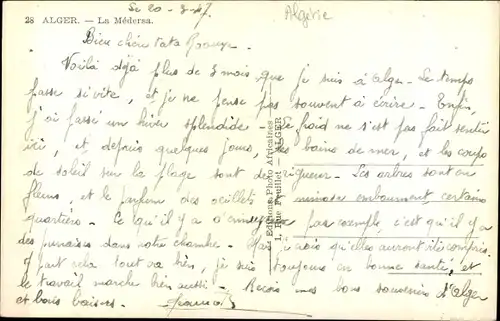 Le 20-3-47
Algérie
28 ALGER. — La Médersa.
Bien chère tata
Voilà déjà plus de 3 mois que je suis à Alger - Le temps
passe si vite, et je ne pense pas souvent à écrire - Enfin,
j'ai passé un hiver splendide - Le froid ne s'est pas fait sentir
ici, et depuis quelques jours, les bains de mer, et les coups
de soleil sur la plage sont de rigueur - Les arbres sont en
fleurs, et le parfum des œillets et embaument certains
quartiers - Ce qu'il y a d'ennuyeux par exemple, c'est qu'il y a
des punaises dans notre chambre - Mais je crois qu'elles auront
A part cela tout va bien, je suis toujours en bonne santé, et
le travail marche bien aussi - Reçois mes bons souvenirs d'Alger
et bons baisers -
Editions Photo Africaines
1, Rue Feuillet - ALGER